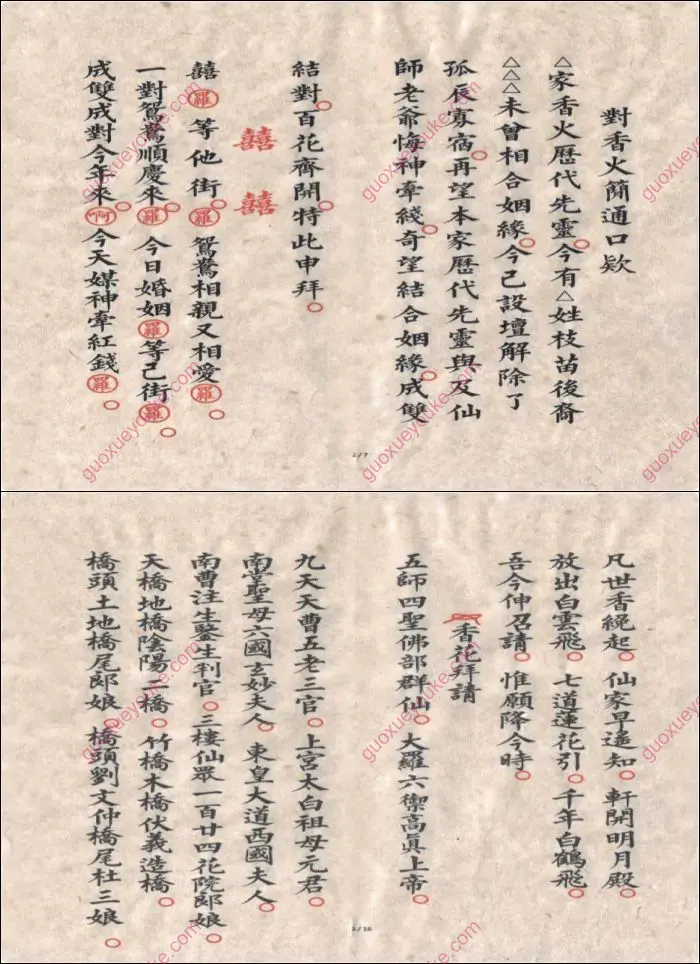 對香火簡通口欵
△家香火歷代先靈○今有△姓枝苗後裔
△△△未曾相合姻緣○今已設壇解除了
孤辰寡宿○再望本家歷代先靈與及仙
師老爺悔神牽綫○奇望結合姻緣○成雙
結對○百花齊開○特此申拜○
囍 囍
囍羅○等他街羅○鴛鴦相親又相愛羅○
一對鴛鴦順慶來羅○今日婚姻羅○等己街羅○
成雙成對今年來啊○今天媒神牽紅錢羅○
2/7
凡世香繞起○仙家早遙知○軒開明月殿○
放出白雲飛○七道蓮花引○千年白鶴飛○
吾今伸召請○惟願降今時○
香花拜請
五師四聖佛部群仙○大羅六禦高眞上帝○
九天天曹五老三官○上宮太白祖母元君○
南堂聖母六國玄妙夫人○東皇大道西國夫人○
南曹注生鑒生判官○三樓仙眾一百廿四花院郎娘○
天橋地橋陰陽二橋○竹橋木橋伏義造橋○
橋頭土地橋尾郎娘○橋頭劉文仲橋尾杜三娘○
guoxueyouke.com